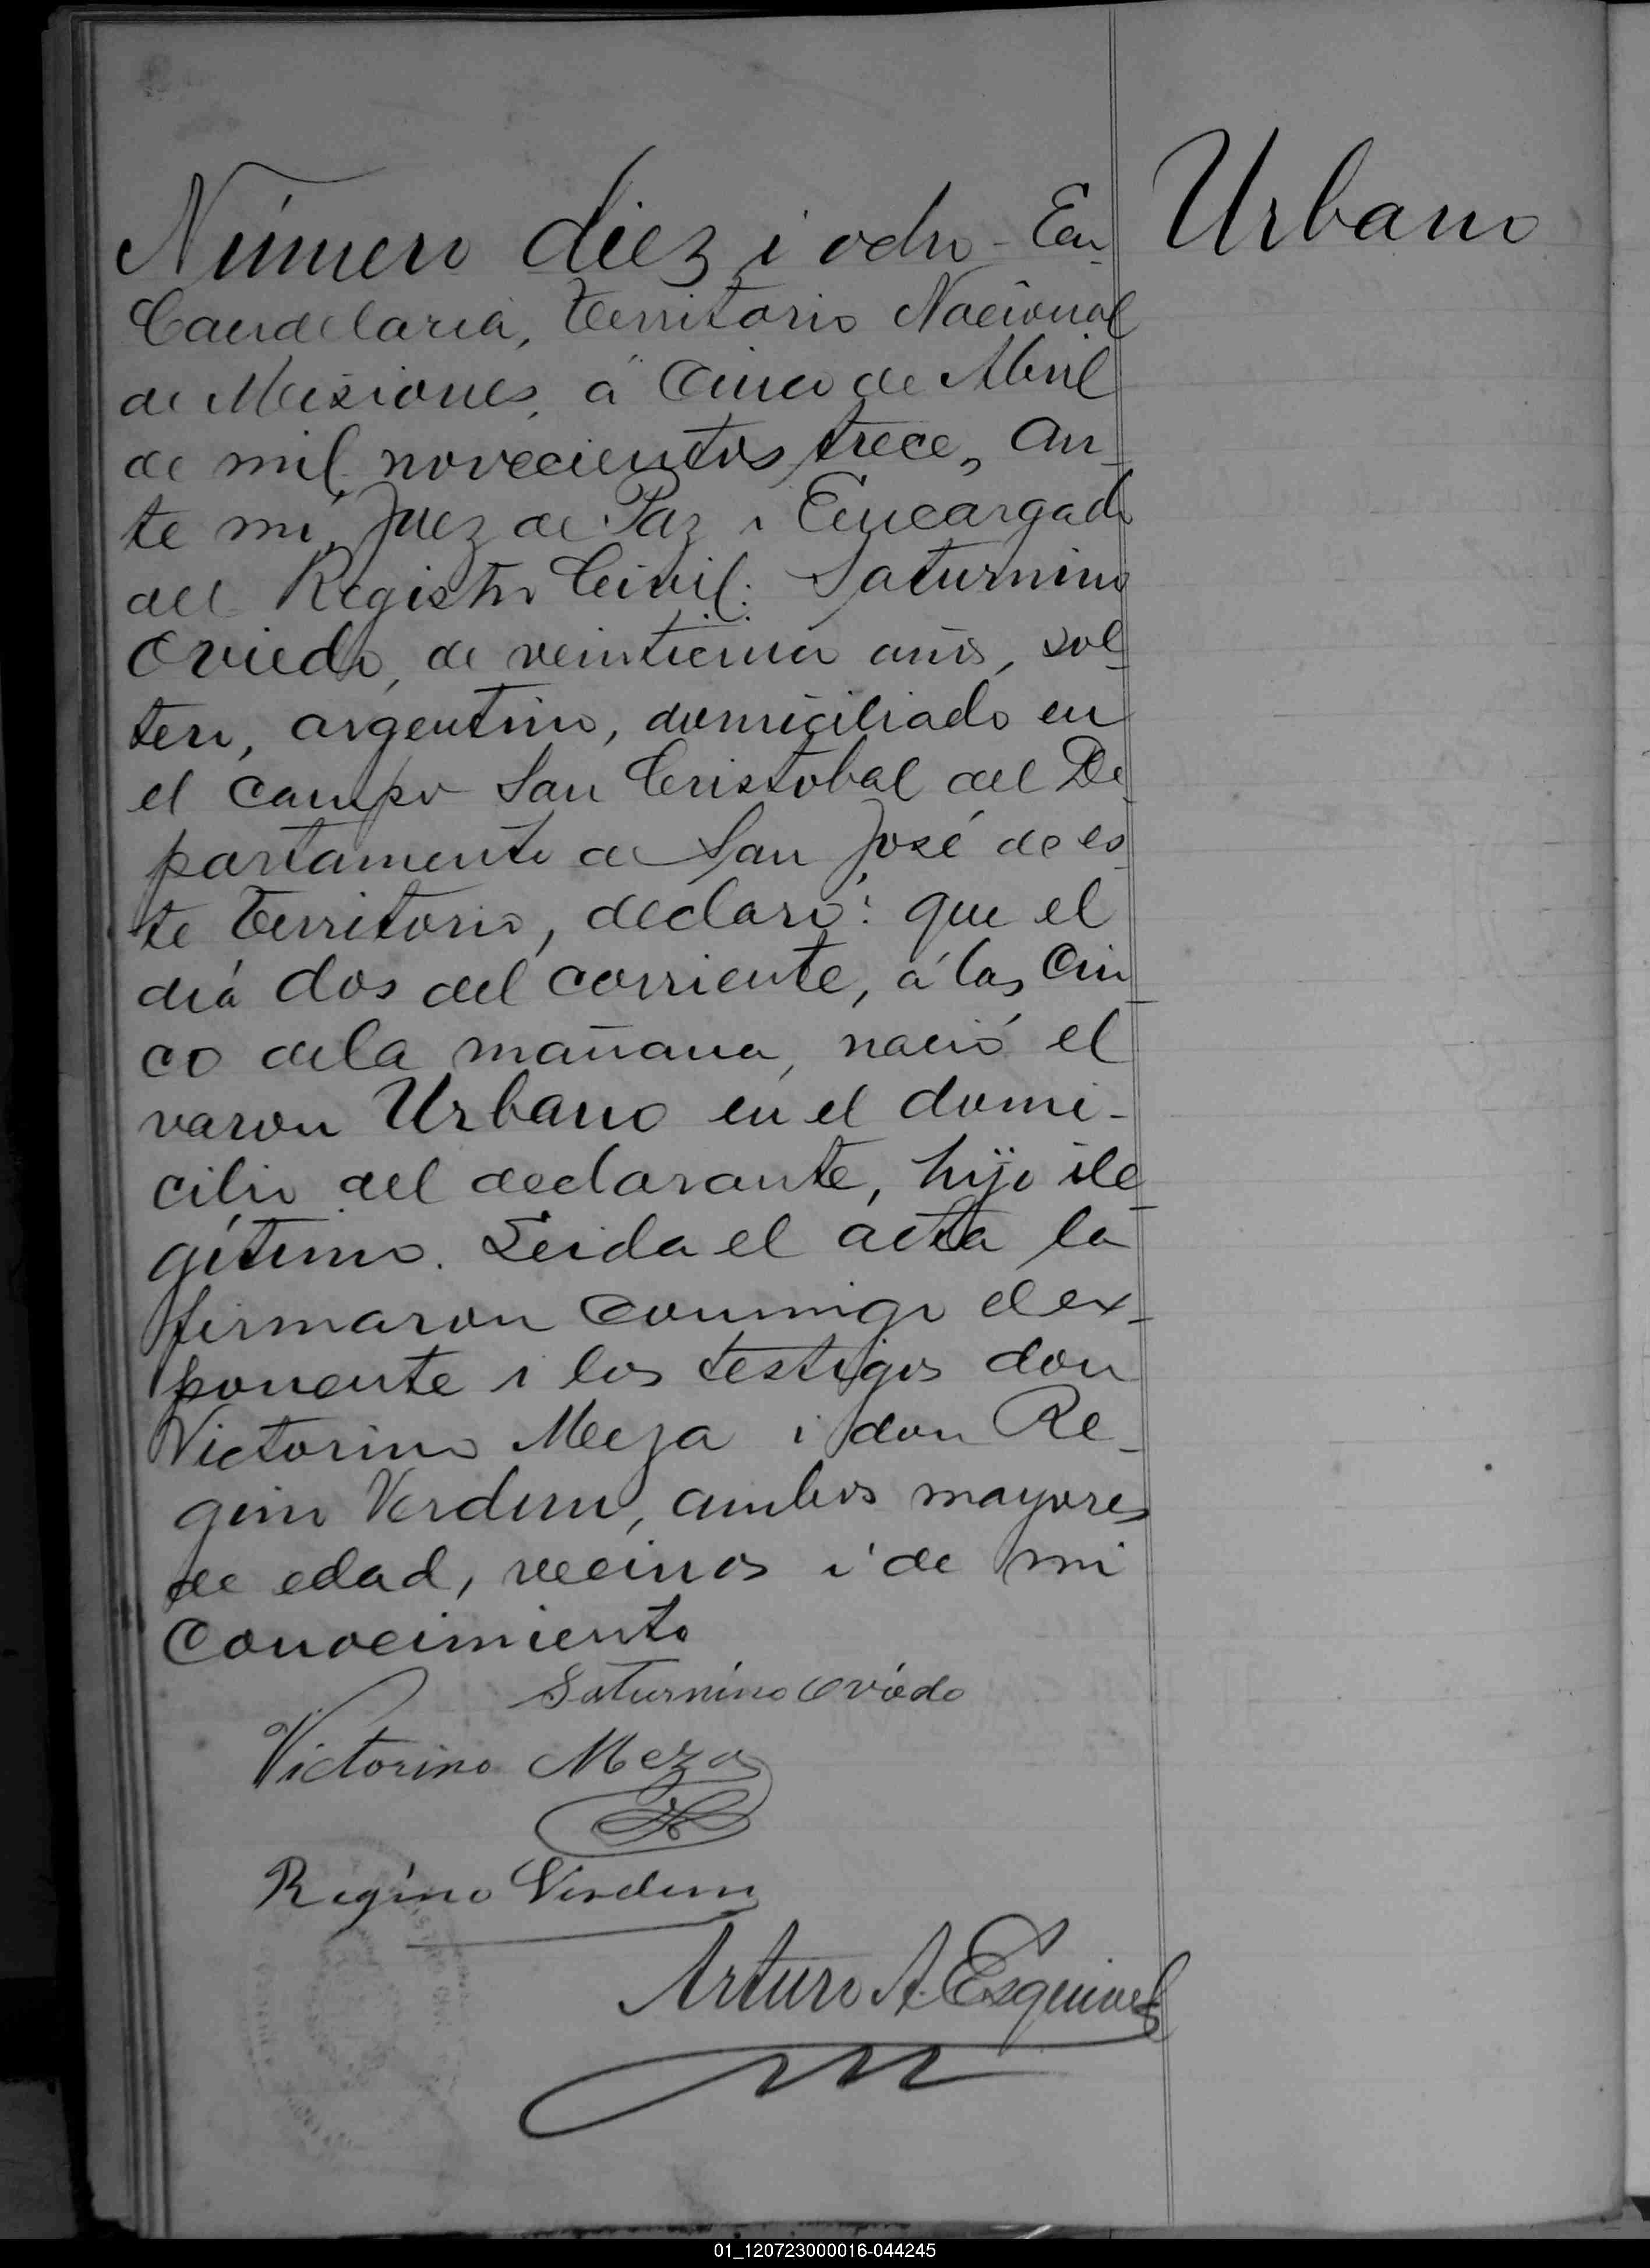 Número diez i ocho - En
Urbano
Candelaria, Territorio Nacional
de Misiones, á Cinco de Abril
de mil novecientos trece, an-
te mi, Juez de Paz i Encargado
del Registro Civil: Saturnino
Oviedo, de veinticinco años, sol-
tero, argentino, domiciliado en
el campo San Cristobal del De-
partamento de San José de es-
te Territorio, declaró: que el
diá dos del corriente, á las Cin-
co dela mañana, nació el
varon Urbano en el domi-
cilio del declarante, hijo ile-
gítimo. Leida el acta la
firmaron conmigo el ex-
ponente i los testigos don
Victorino Meza i don Re-
gino Verdum, ambos mayores
de edad, vecinos i de mi
Conocimiento
Saturnino Oviedo
Victorino Meza
Regino Verdum
Arturo A. Esquivel
01_120723000016-044245